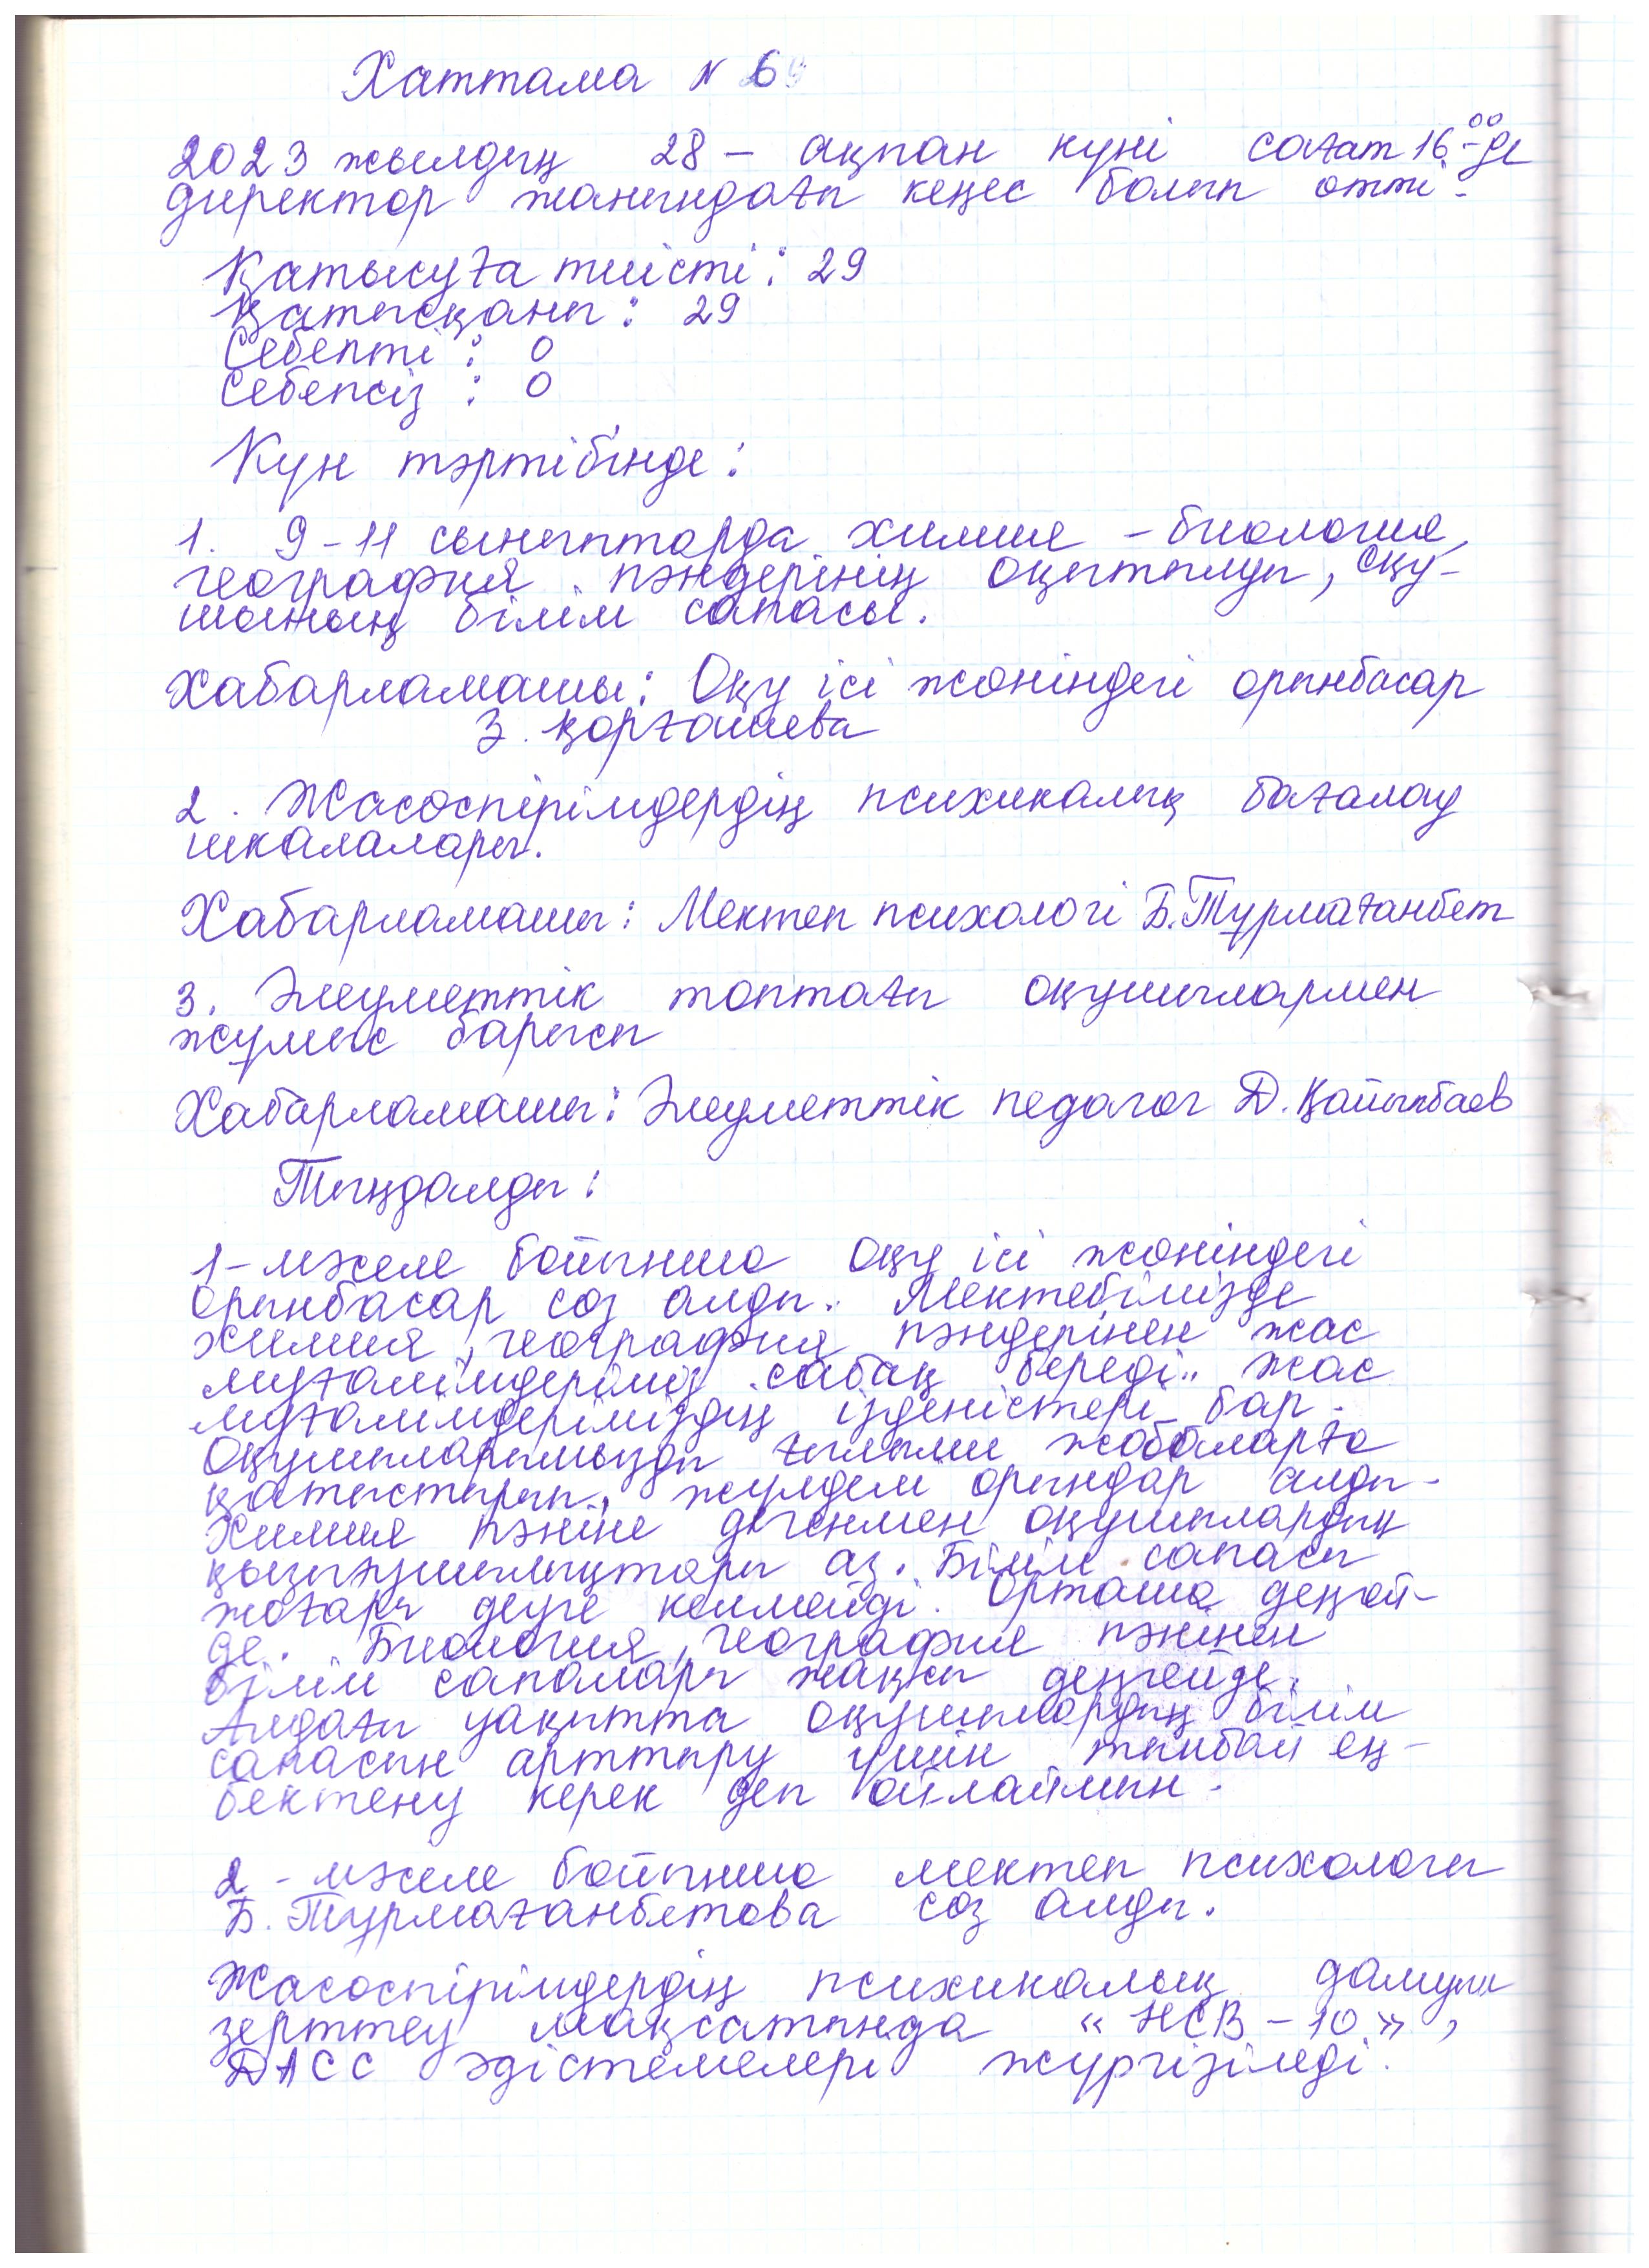 Хаттама № 6
2023 жылдың 28 – ақпан күні сағат 16.⁰⁰-де
директор жанындағы кеңес болып өтті.
Қатысуға тиісті: 29
Қатысқаны: 29
Себепті: 0
Себепсіз: 0
Күн тәртібінде:
1. 9-11 сыныптарда химия – биология,
география пәндерінің оқытылуы, оқу-
шының білім сапасы.
Хабарламашы: Оқу ісі жөніндегі орынбасар
З. Қорғашева
2. Жасөспірімдердің психикалық бағалау
шкалалары.
Хабарламашы: Мектеп психологі Б.Тұрмағанбет
3. Әлеуметтік топтағы оқушылармен
жұмыс барысы
Хабарламашы: Әлеуметтік педагог Д. Қайыпбаев
Тыңдалды:
1-мәселе бойынша Оқу ісі жөніндегі
орынбасар сөз алды. Мектебімізде
химия, география пәндерінен жас
мұғалімдеріміз сабақ береді. Жас
мұғалімдеріміздің ізденістері бар.
Оқушыларымызды ғылыми жобаларға
қатыстырып, жүлделі орындар алды.
Химия пәніне дегенмен оқушылардың
қызығушылықтары аз. Білім сапасы
жоғары деуге келмейді. Орташа деңгей-
де. Биология, география пәнінен
білім сапалары жақсы деңгейде.
Алдағы уақытта оқушылардың білім
сапасын арттыру үшін тынбай ең-
бектену керек деп ойлаймын.
2 - мәселе бойынша мектеп психологы
Б. Тұрмағанбетова сөз алды.
Жасөспірімдердің психикалық дамуын
зерттеу мақсатында « НСВ – 10 » ,
ДАСС әдістемелері жүргізіледі.